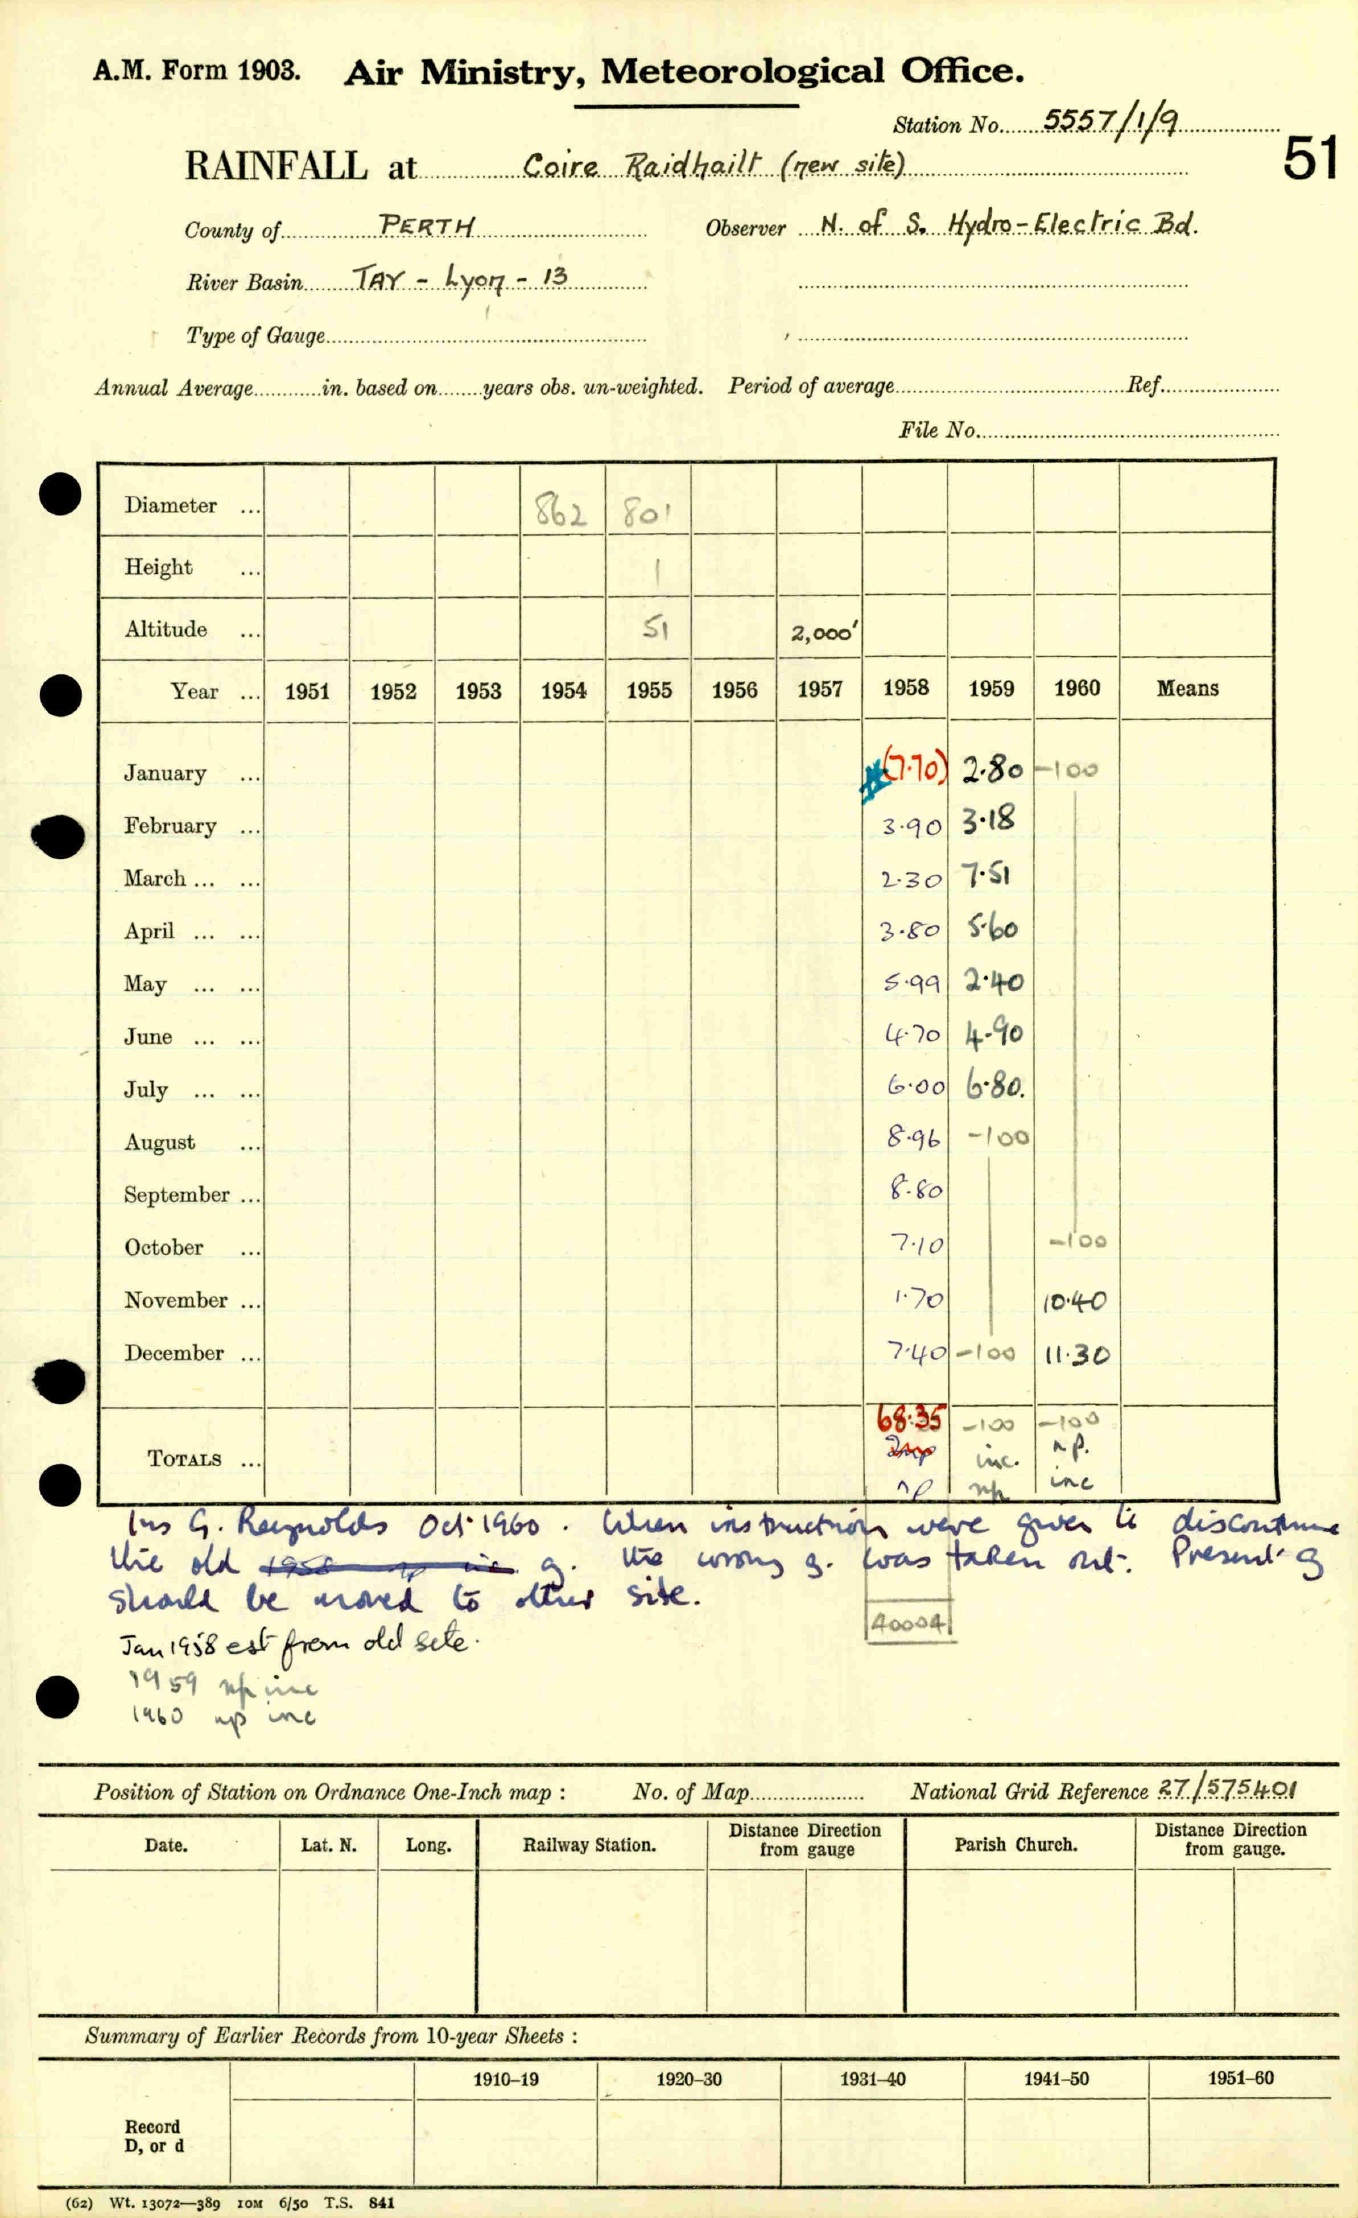 A.M. Form 1903. Air Ministry, Meteorological Office.
Station No. 5557/1/9
51
RAINFALL at Coire Raidhailt (new site)
County of PERTH Observer N. of S. Hydro-Electric Bd.
River Basin TAY - Lyon - 13
Type of Gauge
Annual Average in. based on years obs. un-weighted. Period of average Ref.
File No.
Diameter ... 862 801
Height ... 1
Altitude ... 51 2,000'
Year ... 1951 1952 1953 1954 1955 1956 1957 1958 1959 1960 Means
January ... (7.70) 2.80 -100
February ... 3.90 3.18
March ... ... 2.30 7.51
April ... ... 3.80 5.60
May ... ... 5.99 2.40
June ... ... 4.70 4.90
July ... ... 6.00 6.80.
August ... 8.96 -100
September ... 8.80
October ... 7.10 -100
November ... 1.70 10.40
December ... 7.40 -100 11.30
68.35 -100 -100
TOTALS ... inc. np.
np np inc
Ins G. Reynolds Oct 1960. When instructions were given to discontinue
the old g. the wrong g. was taken out. Present g
should be moved to other site.
40004
Jan 1958 est from old site.
1959 np inc
1960 np inc
Position of Station on Ordnance One-Inch map : No. of Map National Grid Reference 27/575401
Date. Lat. N. Long. Railway Station. Distance Direction from gauge Parish Church. Distance Direction from gauge.
Summary of Earlier Records from 10-year Sheets :
1910–19 1920–30 1931–40 1941–50 1951–60
Record
D, or d
(62) Wt. 13072—389 10M 6/50 T.S. 841